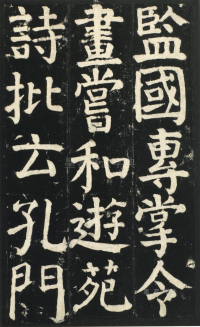 監國專掌令
畫嘗和遊苑
詩批云孔門